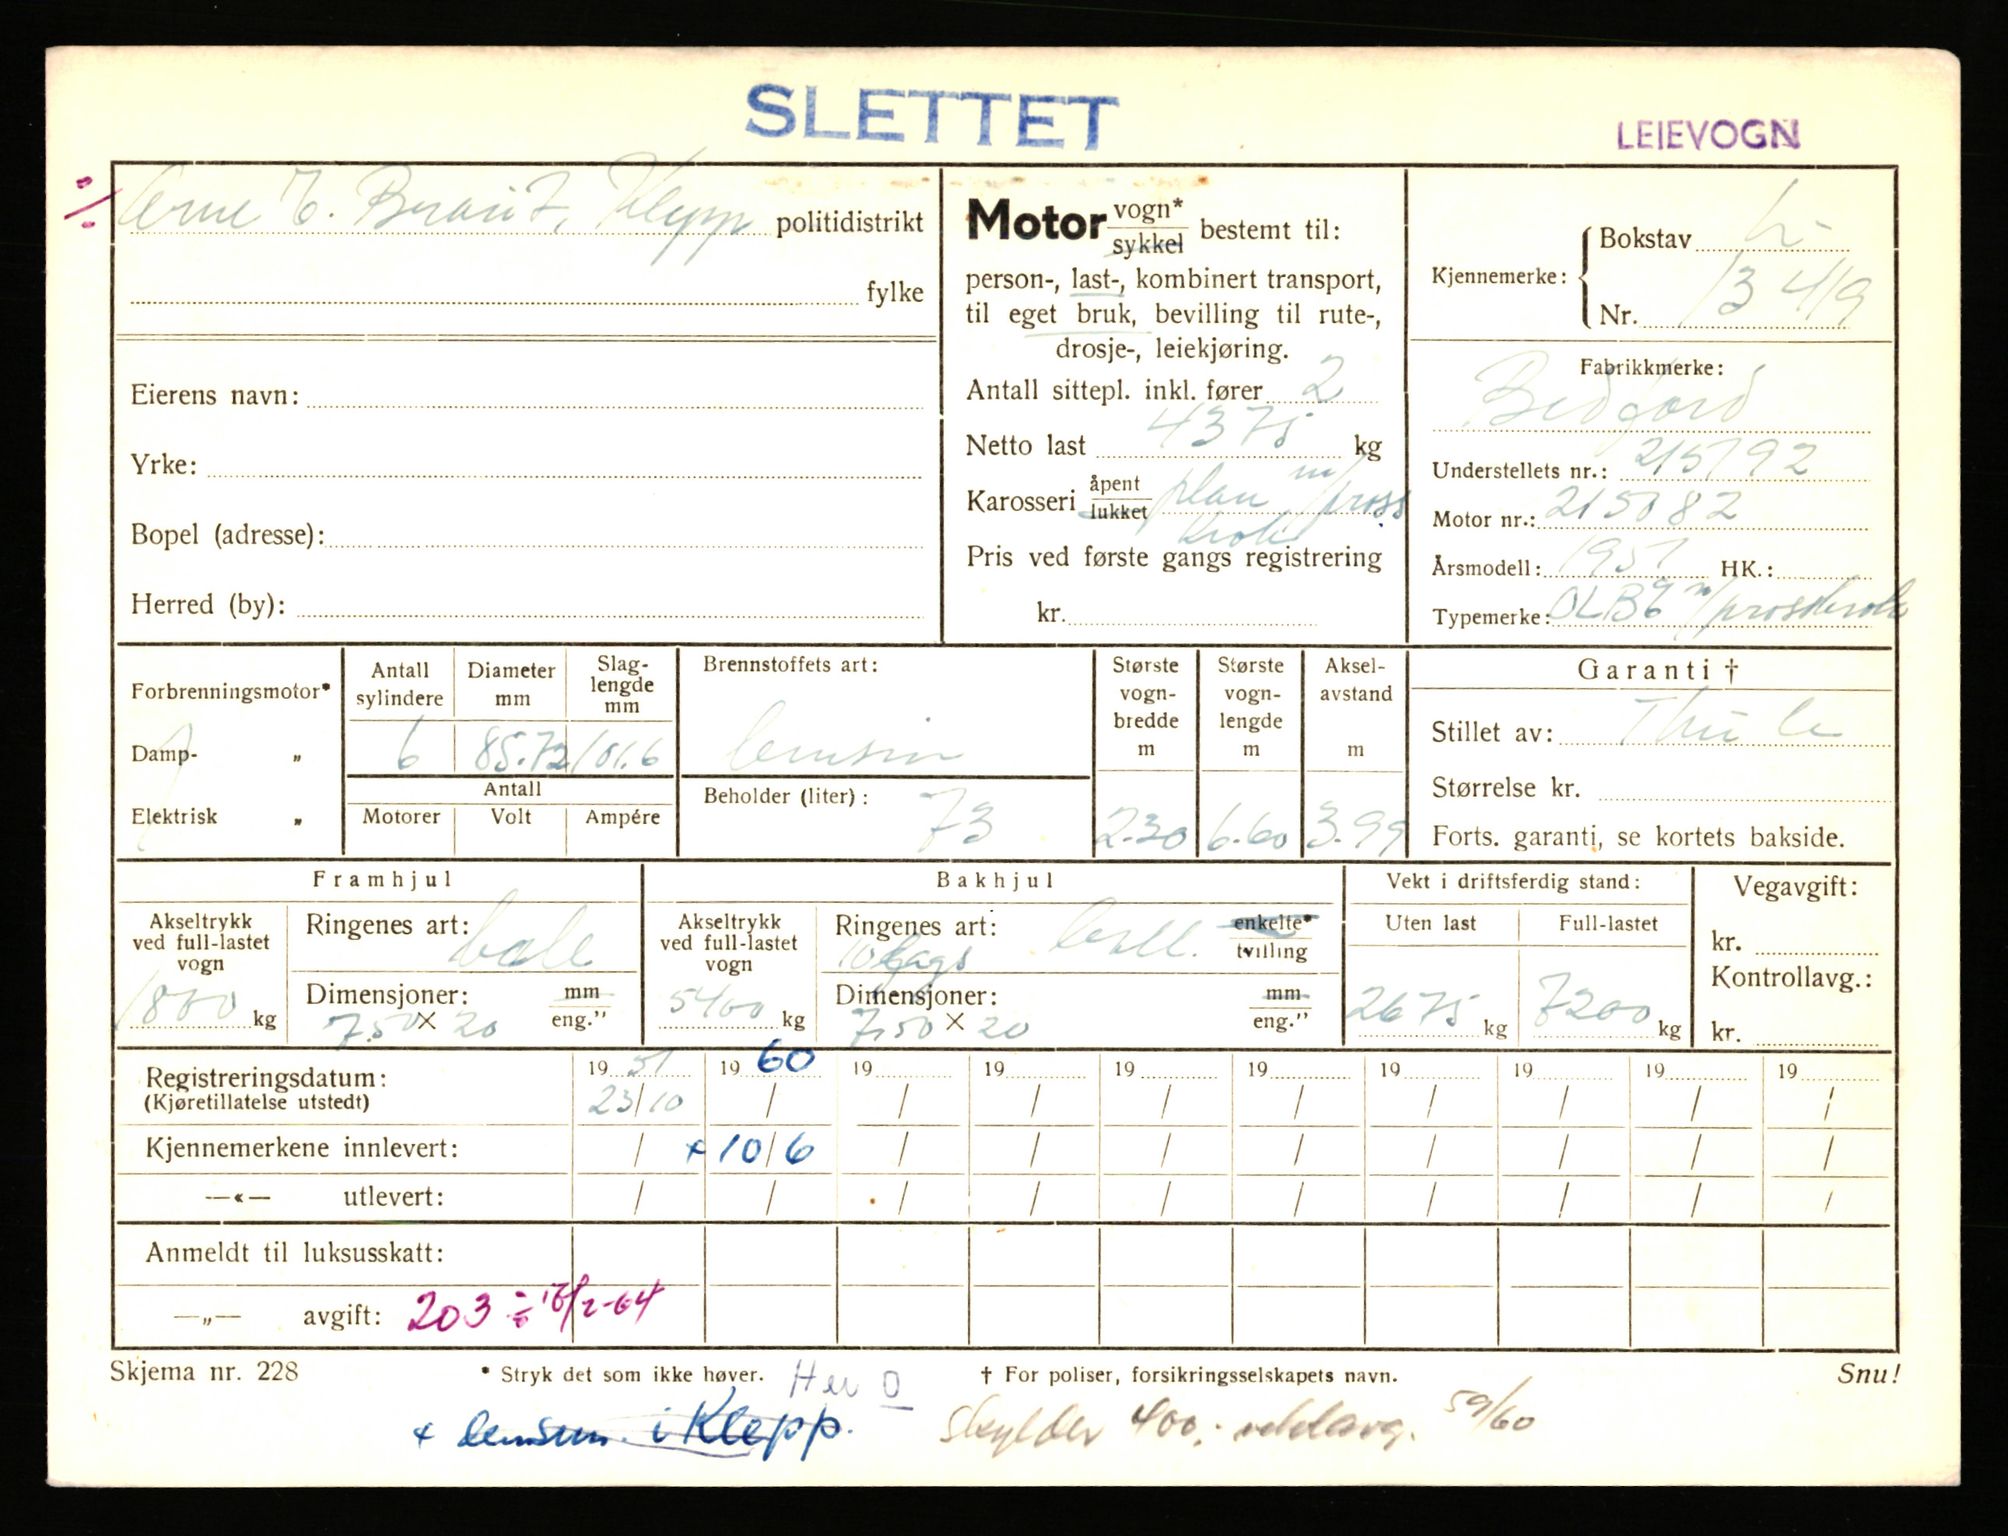 SLETTET
LEIEVOGN
Arne E. Braut, Klepp politidistrikt
fylke
Eierens navn:
Yrke:
Bopel (adresse):
Herred (by):
Motor vogn* sykkel bestemt til:
person-, last-, kombinert transport,
til eget bruk, bevilling til rute-,
drosje-, leiekjøring.
Antall sittepl. inkl. fører 2
Netto last 4375 kg
Karosseri åpent lukket plan m/
Pris ved første gangs registrering
kr.
Kjennemerke: Bokstav L-
Nr. 13419
Fabrikkmerke:
Bedford
Understellets nr.: 215192
Motor nr.: 215082
Årsmodell: 1951 HK.:
Typemerke: OLB6 m/
Forbrenningsmotor*
Damp- „
Elektrisk „
Antall sylindere
Diameter mm
Slag-lengde mm
6 85.72 101.6
Antall
Motorer Volt Ampére
Brennstoffets art:
bensin
Beholder (liter): 73
Største vogn-bredde m
2.30
Største vogn-lengde m
6.60
Aksel-avstand m
3.99
Garanti †
Stillet av: Thule
Størrelse kr.
Forts. garanti, se kortets bakside.
Framhjul
Akseltrykk ved full-lastet vogn
1800 kg
Ringenes art:
Dimensjoner: mm eng."
7.50 × 20
Bakhjul
Akseltrykk ved full-lastet vogn
5400 kg
Ringenes art: ball. enkelte* tvilling
10 lags
Dimensjoner: mm eng."
7.50 × 20
Vekt i driftsferdig stand:
Uten last Full-lastet
2675 kg 7200 kg
Vegavgift:
kr.
Kontrollavg.:
kr.
Registreringsdatum: 19 51 19 60 19 19 19 19 19 19 19 19
(Kjøretillatelse utstedt) 23/10 / / / / / / / / /
Kjennemerkene innlevert: / + 10/6 / / / / / / / /
—«— utlevert: / / / / / / / / / /
Anmeldt til luksusskatt:
—„— avgift: 203
Skjema nr. 228
* Stryk det som ikke høver.
† For poliser, forsikringsselskapets navn.
Snu!
+ i Klepp.
skylder 400,- 59/60